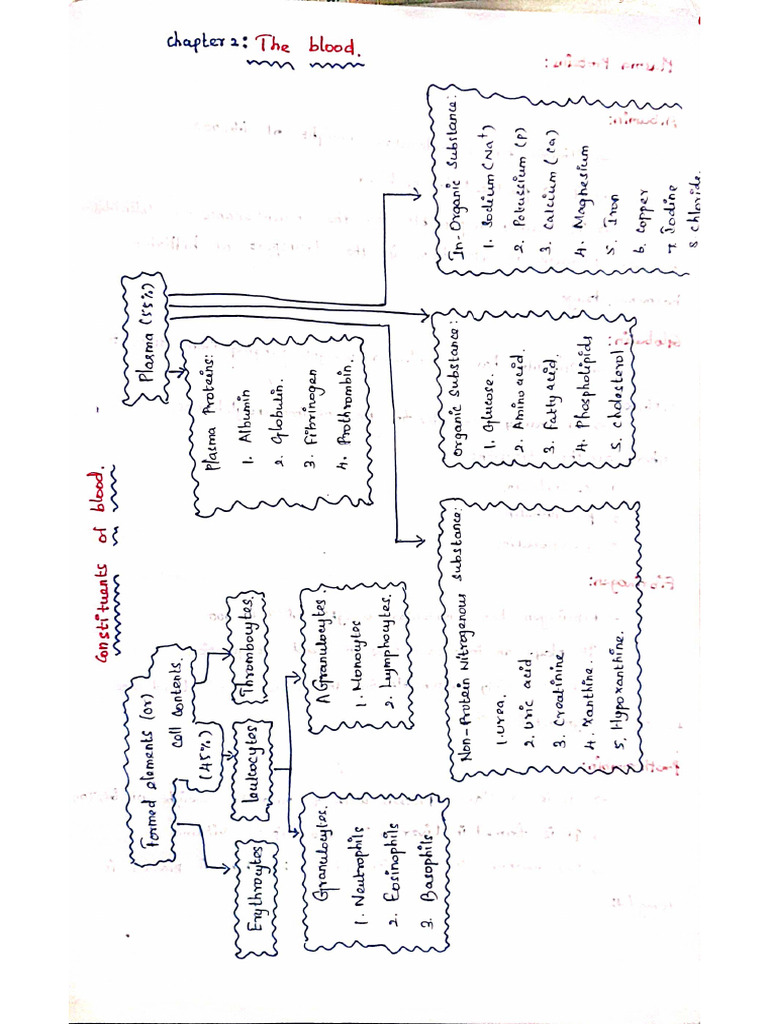 Chapter 2: The blood.
Constituents of blood.
Formed elements (or)
cell contents.
(45%)
Erythrocytes
leukocytes
Thrombocytes.
Granulocytes.
1. Neutrophils
2. Eosinophils
3. Basophils
AGranulocytes.
1. Monocytes
2. Lymphocytes.
Plasma (55%)
Plasma Proteins:
1. Albumin
2. Globulin.
3. Fibrinogen
4. Prothrombin.
Non-Protein Nitrogenous substance:
1. urea.
2. uric acid.
3. Creatinine
4. Xanthine.
5. Hypoxanthine.
organic substance:
1. Glucose.
2. Amino acid.
3. Fatty acid.
4. Phospholipids
5. cholesterol
In-Organic substance:
1. Sodium (Na+)
2. Potassium (P)
3. Calcium (Ca)
4. Magnesium
5. Iron
6. Copper
7. Iodine
8 chloride.